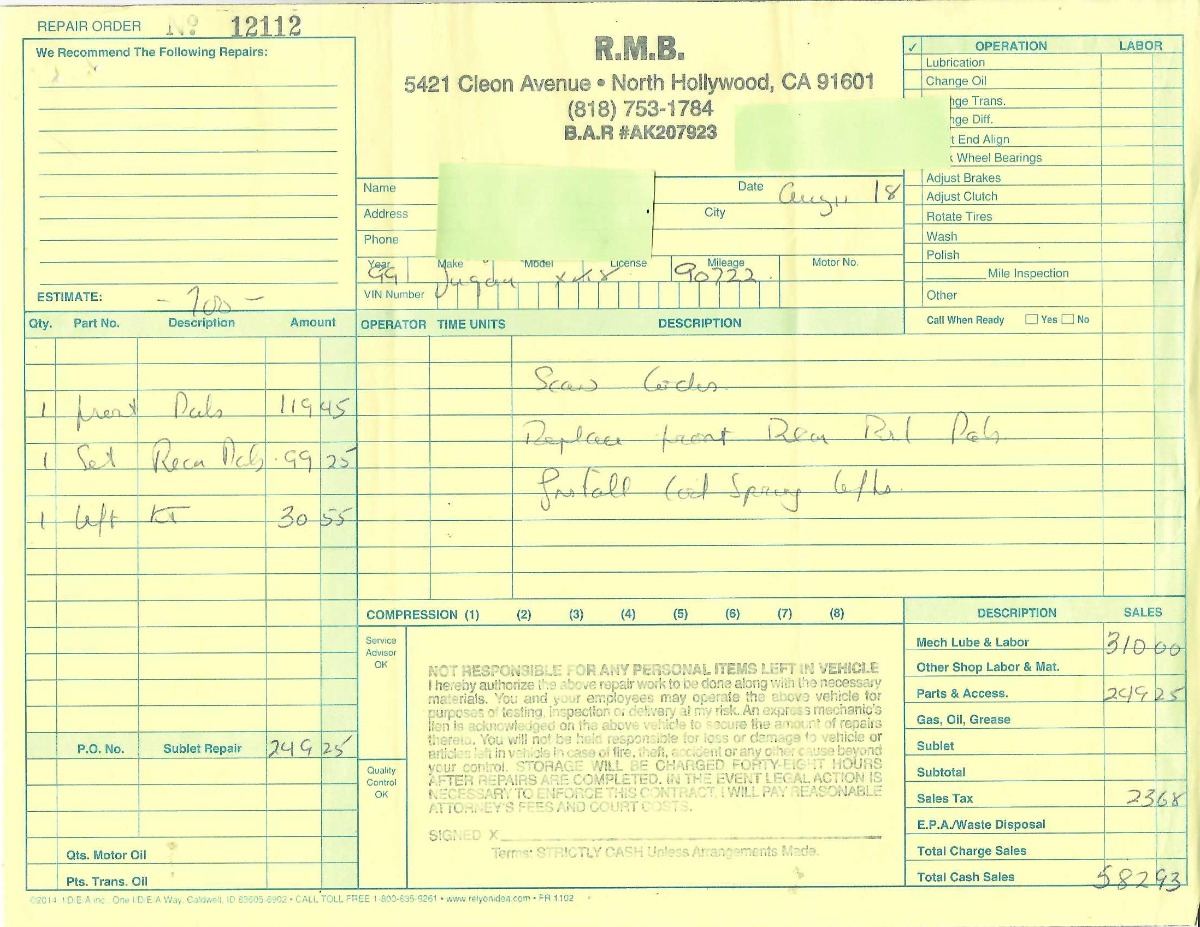 REPAIR ORDER Nº 12112
We Recommend The Following Repairs:
R.M.B.
5421 Cleon Avenue • North Hollywood, CA 91601
(818) 753-1784
B.A.R #AK207923
✓ OPERATION LABOR
Lubrication
Change Oil
nge Trans.
nge Diff.
t End Align
Wheel Bearings
Adjust Brakes
Adjust Clutch
Rotate Tires
Wash
Polish
Mile Inspection
Other
Call When Ready Yes No
Name
Date 18
Address
City
Phone
Year Make Model License Mileage Motor No.
99 90722
VIN Number
ESTIMATE: - 700 -
Qty. Part No. Description Amount
1 front Pads 119 45
1 Set Rear Pads 99 25
1 30 55
P.O. No. Sublet Repair 249 25
Qts. Motor Oil
Pts. Trans. Oil
OPERATOR TIME UNITS DESCRIPTION
Scan Codes
Replace front Rear Pads
Install Coil Spring
COMPRESSION (1) (2) (3) (4) (5) (6) (7) (8)
Service
Advisor
OK
Quality
Control
OK
NOT RESPONSIBLE FOR ANY PERSONAL ITEMS LEFT IN VEHICLE
I hereby authorize the above repair work to be done along with the necessary
materials. You and your employees may operate the above vehicle for
purposes of testing, inspection or delivery at my risk. An express mechanic's
lien is acknowledged on the above vehicle to secure the amount of repairs
thereto. You will not be held responsible for loss or damage to vehicle or
articles left in vehicle in case of fire, theft, accident or any other cause beyond
your control. STORAGE WILL BE CHARGED FORTY-EIGHT HOURS
AFTER REPAIRS ARE COMPLETED. IN THE EVENT LEGAL ACTION IS
NECESSARY TO ENFORCE THIS CONTRACT, I WILL PAY REASONABLE
ATTORNEY'S FEES AND COURT COSTS.
SIGNED X
Terms: STRICTLY CASH Unless Arrangements Made.
DESCRIPTION SALES
Mech Lube & Labor 310 00
Other Shop Labor & Mat.
Parts & Access. 249 25
Gas, Oil, Grease
Sublet
Subtotal
Sales Tax 23 68
E.P.A./Waste Disposal
Total Charge Sales
Total Cash Sales 582 93
©2014 I.D.E.A inc. One I.D.E.A Way, Caldwell, ID 83605-6902 • CALL TOLL FREE 1-800-635-9261 • www.relyonidea.com • FR 1102